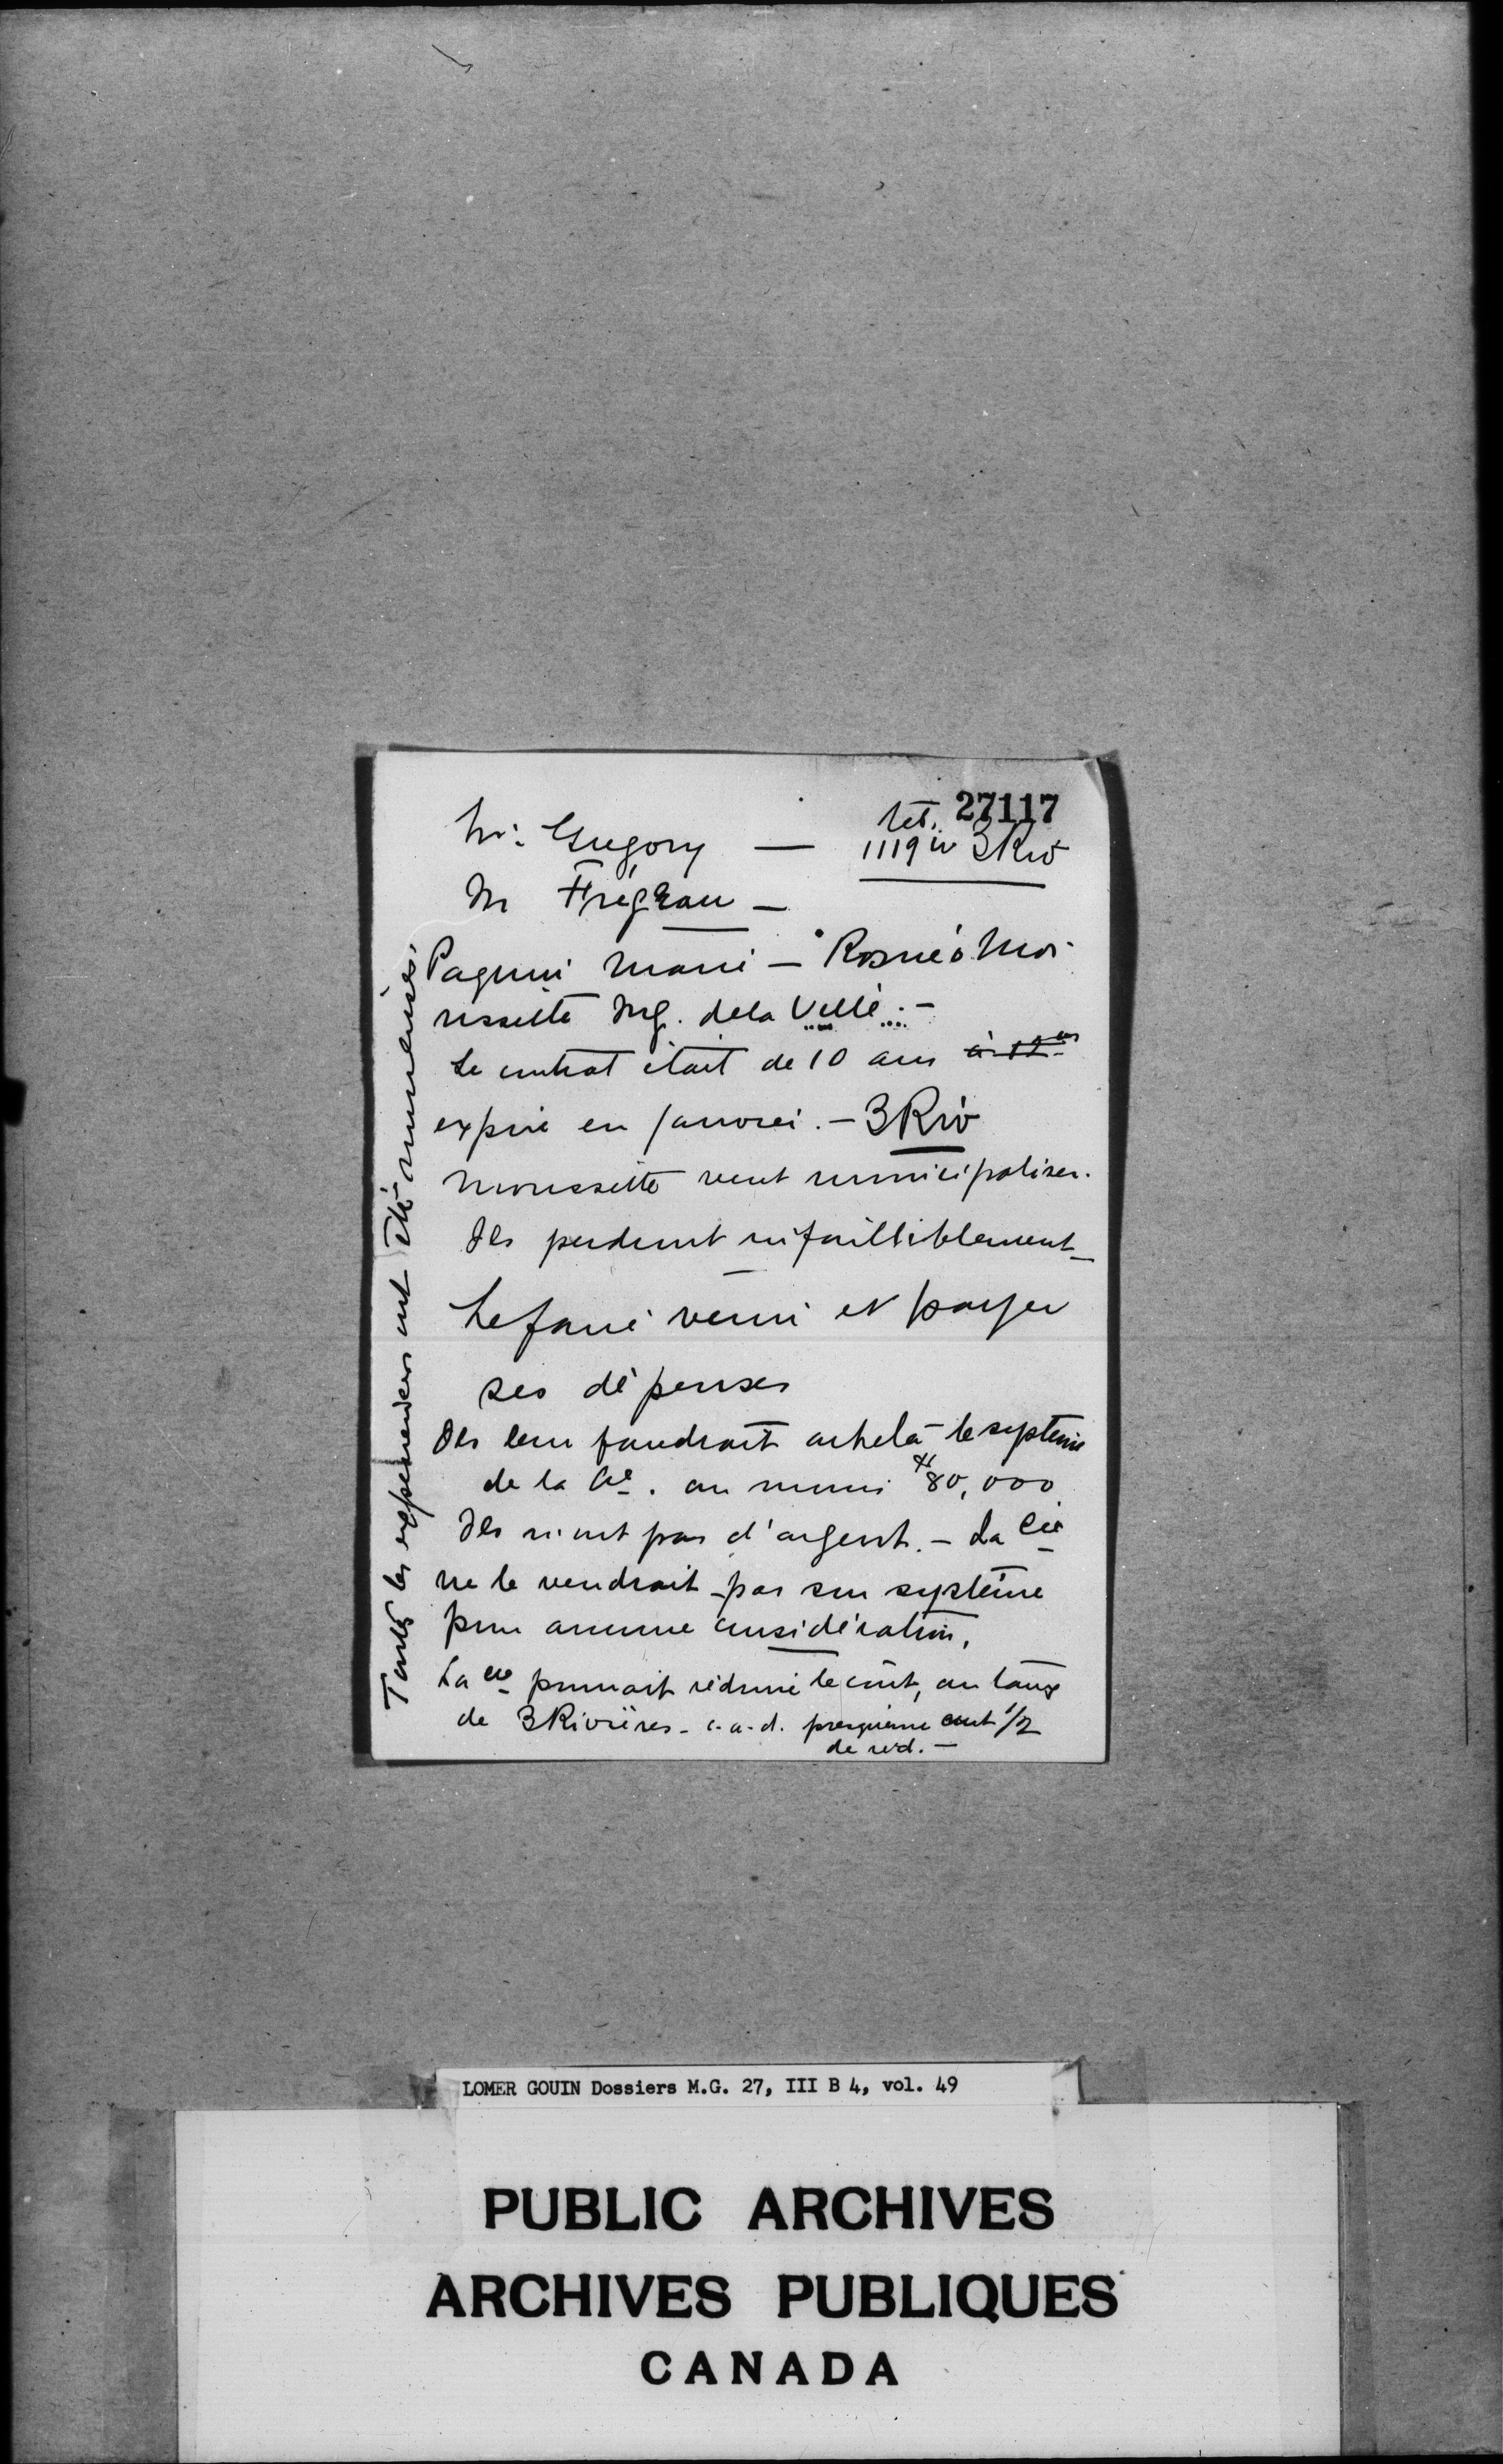 27117
Mr. Gregory — tel. 1119 w 3 Riv
M Frégeau —
Paquin Maire — Roméo Mo-
rissette Ing. de la Ville. —
Le contrat était de 10 ans
expire en janvier. — 3 Riv
Morissette veut municipaliser.
Ils perdront infailliblement —
Le faire venir et payer
ses dépenses
Ils leur faudrait acheter le système
de la Cie. au moins $80,000
Ils n'ont pas d'argent. — La Cie
ne le vendrait pas son système
pour aucune considération.
La Cie pourrait réduire le coût, au taux
de 3 Rivières - c.-a-d. presqu'une cent 1/2
de red. —
Toutes les expériences ont été ruineuses.
LOMER GOUIN Dossiers M.G. 27, III B 4, vol. 49
PUBLIC ARCHIVES
ARCHIVES PUBLIQUES
CANADA